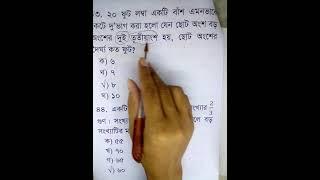 ৩, ২০ ফুট লম্বা একটি বাঁশ এমনভাবে
কেটে দু'ভাগ করা হলো যেন ছোট অংশ বড়
অংশের দুই তৃতীয়াংশ হয়, ছোট অংশের
দৈর্ঘ্য কত ফুট?
ক) ৬
খ) ৭
√) ৮
ঘ) ১০
৪৪. একটি সংখ্যার 2/3
গুণ। সংখ্যা লে বড়
সংখ্যাটির ম
ক) ৫৫
খ) ৭০
গ) ৬৫
√) ৬০